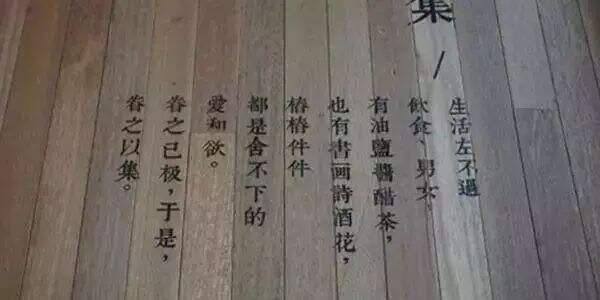 集/
生活左不過
飲食、男女，
有油鹽醬醋茶，
也有書画詩酒花，
樁樁件件
都是舍不下的
愛和欲。
眷之已极，于是，
眷之以集。